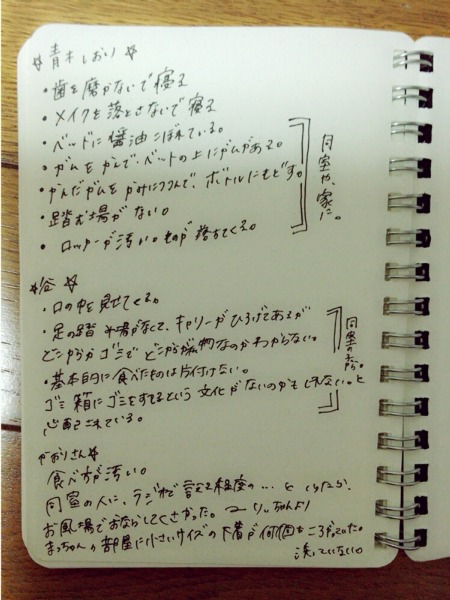 ☆青木しおり
・歯を磨かないで寝る
・メイクを落とさないで寝る
・ベッドに醤油こぼれている。
・ガムをかんで、ベットの上にガムがある。
・かんだガムをかみにつつんで、ボトルにもどす。
・踏む場がない。
・ロッカーが汚い。ものが落ちてくる。
同室や、家に。
☆谷☆
・口の中を見せてくる。
・足の踏み場がなくて、キャリーがひろげてあるが
どこからがゴミで どこからが物なのかわからない。
・基本的に食べたものは片付けない。
ゴミ箱にゴミをすてるという文化がないのかもしれない。と
心配されている。
同室の
かおりさん☆
食べ方が汚い。
同室の人に、ラジオで言える程度の…と
お風呂場でおならしてくさかった。 〜りっちゃんより
まっちゃんの部屋に小さいサイズの下着が何個もころがっていた。
洗っていない。